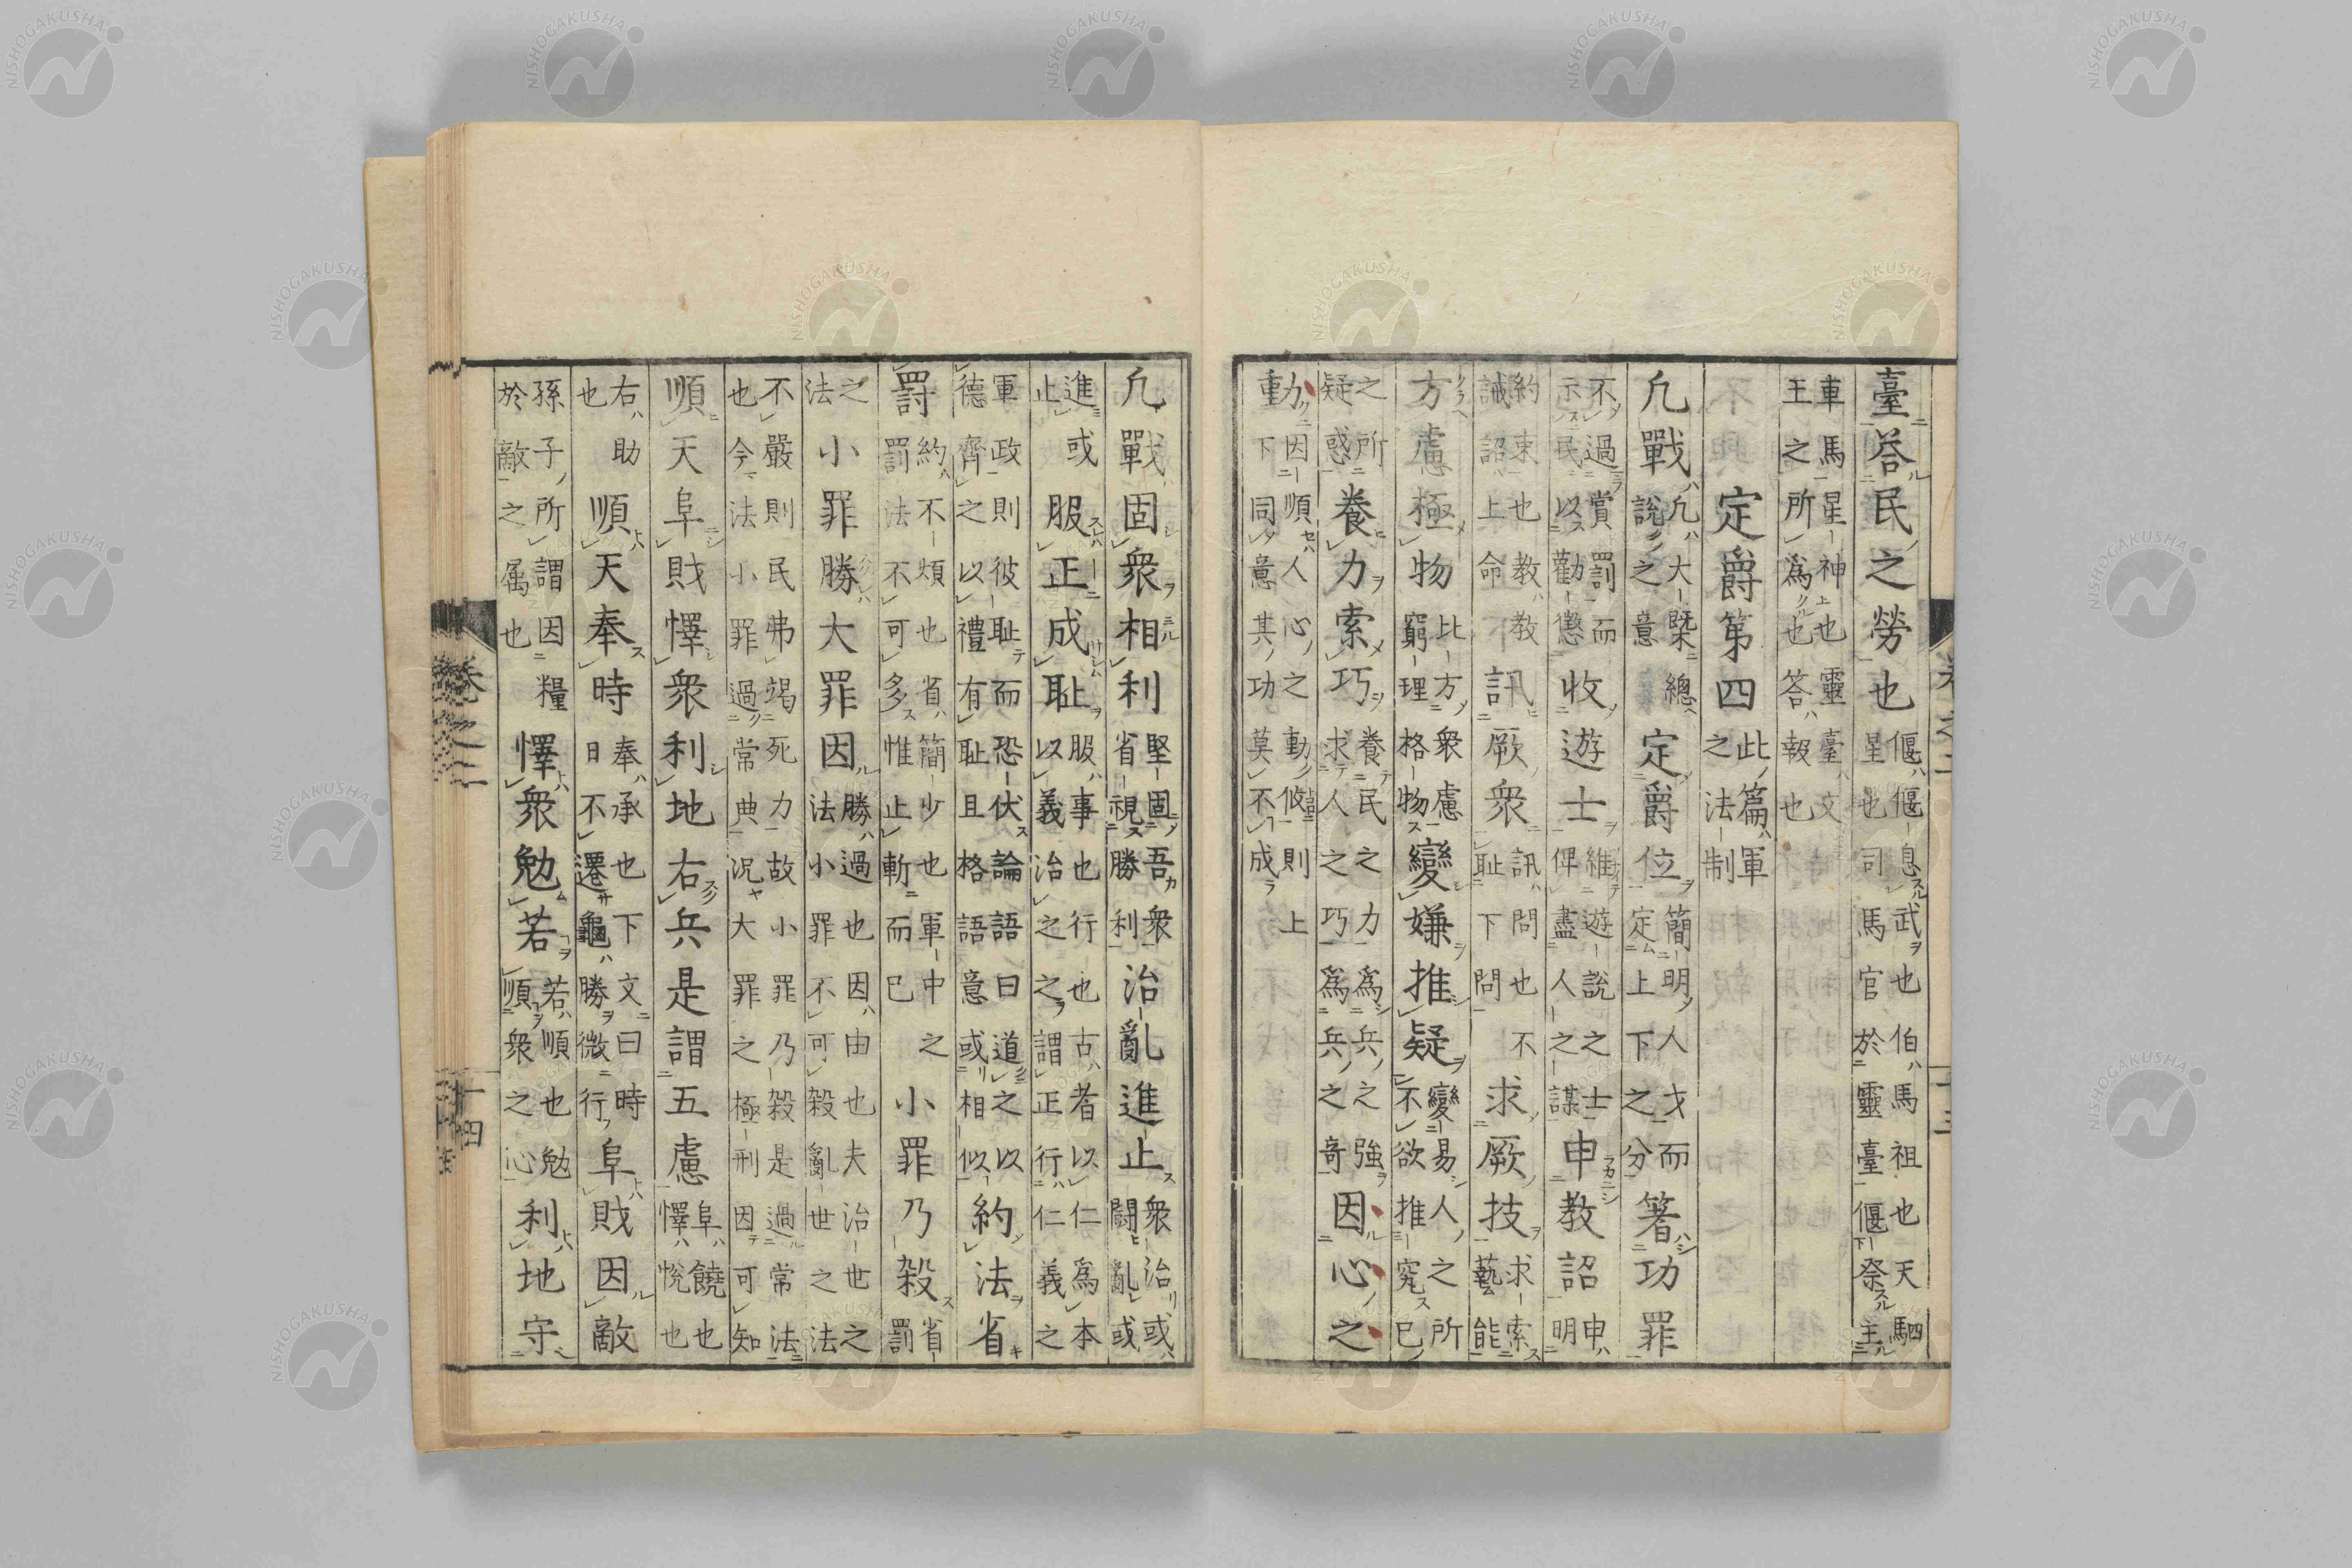 臺答民之勞也偃偃息武也伯馬祖也天駟星也司馬官於靈臺偃祭主
車馬星神也靈臺文王之所爲也答報也
定爵第四此篇軍之法制
凢戰凢大槩總說之意定爵位簡明人才而定上下之分著功罪
不過賞罰而示民以勸懲收遊士維遊說之士俾盡人之謀申教詔申明
約束也教教誡詔上命訊厥衆訊問也不恥下問求厥技求索藝能
方慮極物比方衆慮窮理格物變嫌推疑變易人之所不欲推究己
之所疑惑養力索巧養民之力爲兵之強求人之巧爲兵之奇因心之
動因順人心之動攸則上下同意其功莫不成
十三
凢戰固衆相利堅固吾衆省視勝利治亂進止衆治或鬪亂或
進或止服正成恥服事也行也古者以仁爲本以義治之之謂正行仁義之
軍政則彼恥而恐伏論語曰道之以德齊之以禮有恥且格語意或相似約法省
罰約不煩也省簡少也軍中之罰法不可多惟止斬而已小罪乃殺省罰
之法小罪勝大罪因勝過也因由也夫治世之法小罪不可殺亂世之法
不嚴則民弗竭死力故小罪乃殺是過常法也今法小罪過常典況大罪之極刑因可知
順天阜財懌衆利地右兵是謂五慮阜饒也懌悅也
右助也順天奉時奉承也下文曰時日不遷龜勝微行阜財因敵
孫子所謂因糧於敵之属也懌衆勉若若順也勉順衆之心利地守
卷之二
十四
NISHOGAKUSHA